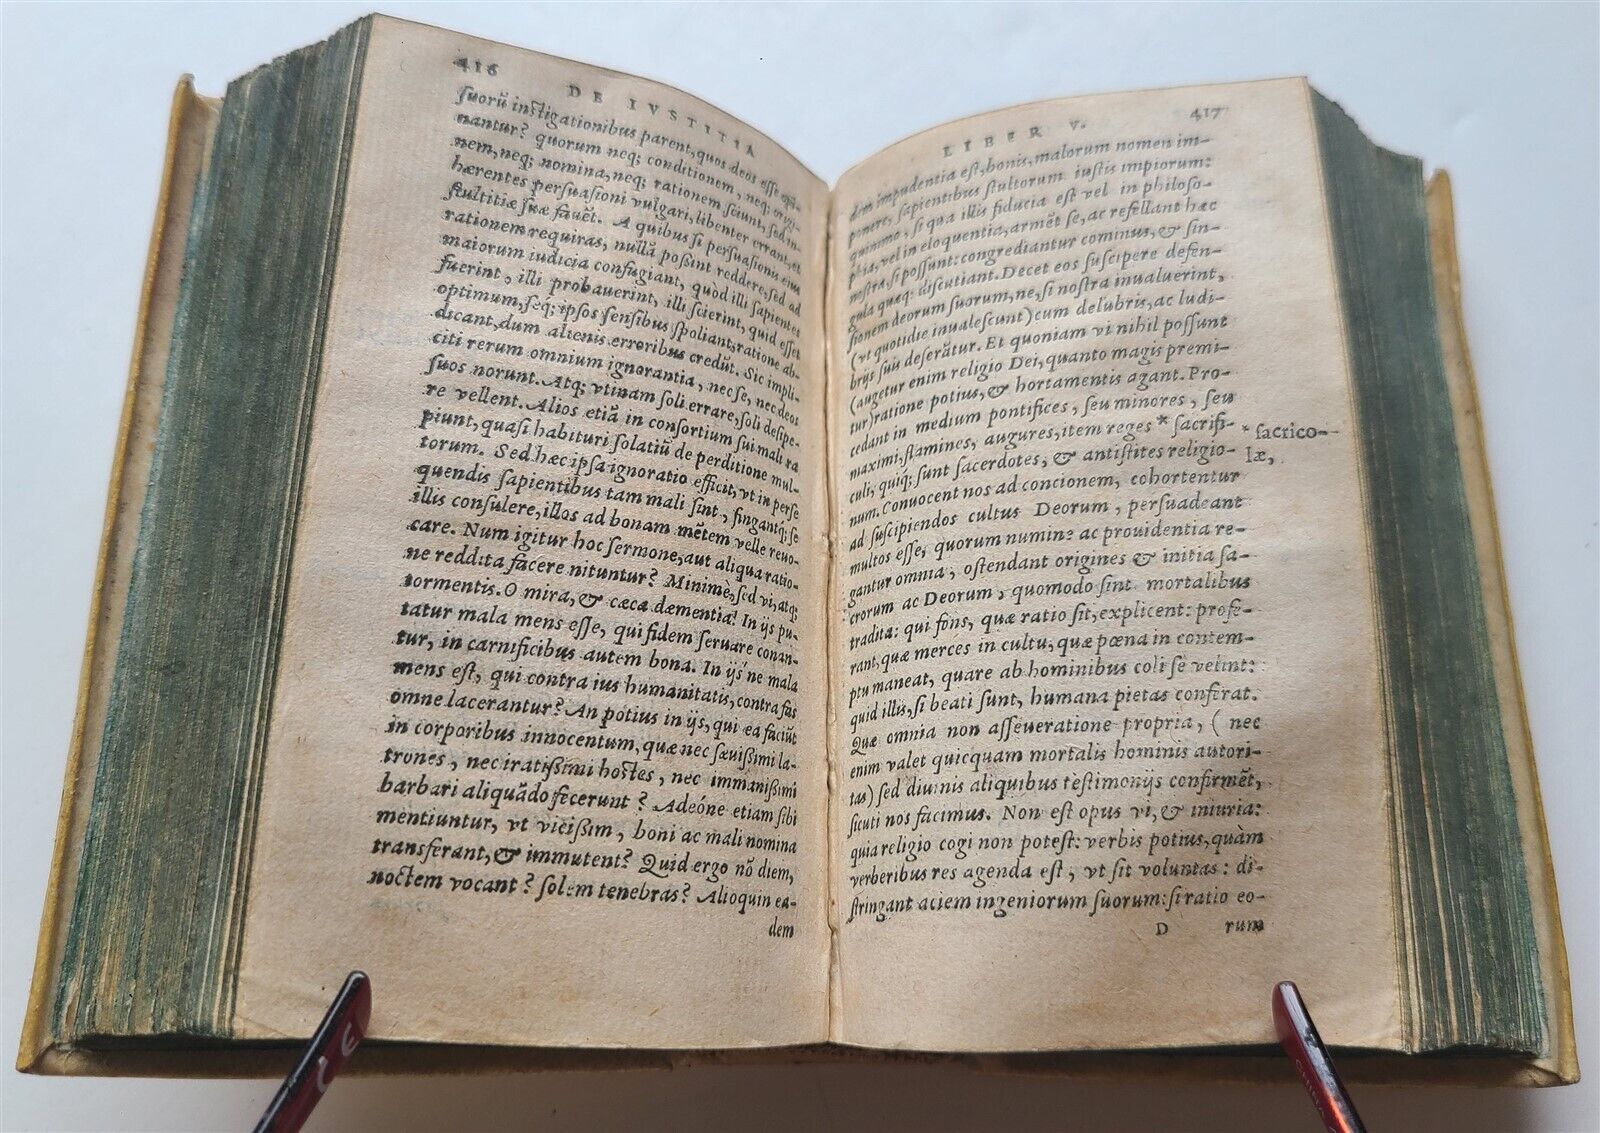 416
DE IVSTITIA
ſuorũ inſtigationibus parent, quos deos eſſe opi-
nantur? quorum neq; conditionem, neq; origi-
nem, neq; nomina, neq; rationem ſciunt, ſed in-
hærentes perſuaſioni vulgari, libenter errant, et
ſtultitiæ ſuæ favẽt. A quibus ſi perſuaſionis eius
rationem requiras, nullã poßint reddere, ſed ad
maiorum iudicia confugiant, quòd illi ſapientes
fuerint, illi probauerint, illi ſcierint, quid eſſet
optimum, ſeq́; ipſos ſenſibus ſpoliant: ratione ab-
dicant, dum alienis erroribus credũt. Sic impli-
citi rerum omnium ignorantia, nec ſe, nec deos
ſuos norunt. Atq; vtinam ſoli errare, ſoli deſipe-
re vellent. Alios etiã in conſortium ſui mali ra
piunt, quaſi habituri ſolatiũ de perditione mul-
torum. Sed hæc ipſa ignoratio efficit, vt in perſe
quendis ſapientibus tam mali ſint, fingantq́; ſe
illis conſulere, illos ad bonam mẽtem velle reuo-
care. Num igitur hoc ſermone, aut aliqua ratio-
ne reddita facere nituntur? Minimè, ſed vi, atq;
tormentis. O mira, & cæca dæmentia! In ijs pu-
tatur mala mens eſſe, qui fidem ſeruare conan-
tur, in carnificibus autem bona. In ijs ne mala
mens eſt, qui contra ius humanitatis, contra fas
omne lacerantur? An potius in ijs, qui ea faciũt
in corporibus innocentum, quæ nec ſæuißimi la-
trones, nec iratißimi hoſtes, nec immanißimi
barbari aliquãdo fecerunt? Adeóne etiam ſibi
mentiuntur, vt vicißim, boni ac mali nomina
transferant, & immutent? Quid ergo nõ diem,
noctem vocant? ſolem tenebras? Alioquin ea-
dem
LIBER V.
417
dem impudentia eſt, bonis, malorum nomen im-
ponere, ſapientibus ſtultorum iuſtis impiorum:
quinimo, ſi qua illis fiducia eſt vel in philoſo-
phia, vel in eloquentia, armẽt ſe, ac refellant hæc
noſtra, ſi poſſunt: congrediantur cominus, & ſin-
gula quæq; diſcutiant. Decet eos ſuſcipere defen-
ſionem deorum ſuorum, ne, ſi noſtra inualuerint,
(vt quotidie inualeſcunt) cum delubris, ac ludi-
brijs ſuis deſerãtur. Et quoniam vi nihil poſſunt
(augetur enim religio Dei, quanto magis premi-
tur) ratione potius, & hortamentis agant. Pro-
cedant in medium pontifices, ſeu minores, ſeu
maximi, flamines, augures, item reges * ſacrifi-
culi, quiq́; ſunt ſacerdotes, & antiſtites religio-
num. Conuocent nos ad concionem, cohortentur
ad ſuſcipiendos cultus Deorum, perſuadeant
multos eſſe, quorum numine ac prouidentia re-
gantur omnia, oſtendant origines & initia ſa-
crorum ac Deorum, quomodo ſint mortalibus
tradita: qui fons, quæ ratio ſit, explicent: profe-
rant, quæ merces in cultu, quæ pœna in contem-
ptu maneat, quare ab hominibus coli ſe velint:
quid illis, ſi beati ſunt, humana pietas conferat.
Quæ omnia non aſſeueratione propria, (nec
enim valet quicquam mortalis hominis autori-
tas) ſed diuinis aliquibus teſtimonijs confirmẽt,
ſicuti nos facimus. Non eſt opus vi, & iniuria:
quia religio cogi non poteſt: verbis potius, quàm
verberibus res agenda eſt, vt ſit voluntas: di-
ſtringant aciem ingeniorum ſuorum: ſi ratio eo-
D rum
* ſacrico-
læ,